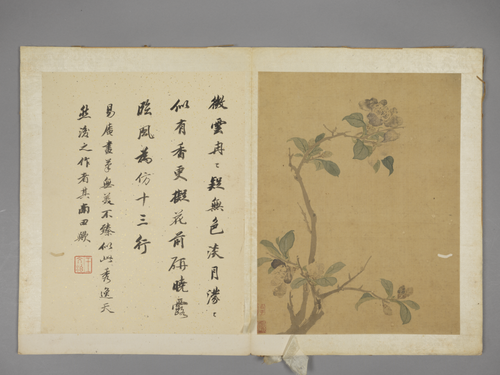 微雲冉〻疑無色淡月濛〻
似有香更擬花前研曉露
臨風為仿十三行
易庵畫筆無美不臻似此秀逸天
然之作者其南田歟